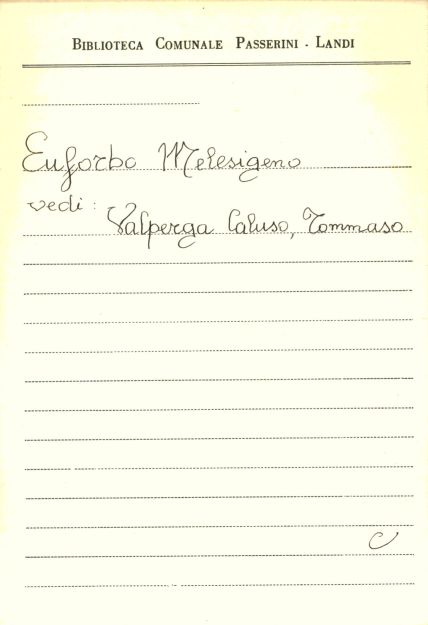 Biblioteca Comunale Passerini - Landi
Euforbo Melesigeno
vedi:
Valperga Caluso, Tommaso
C